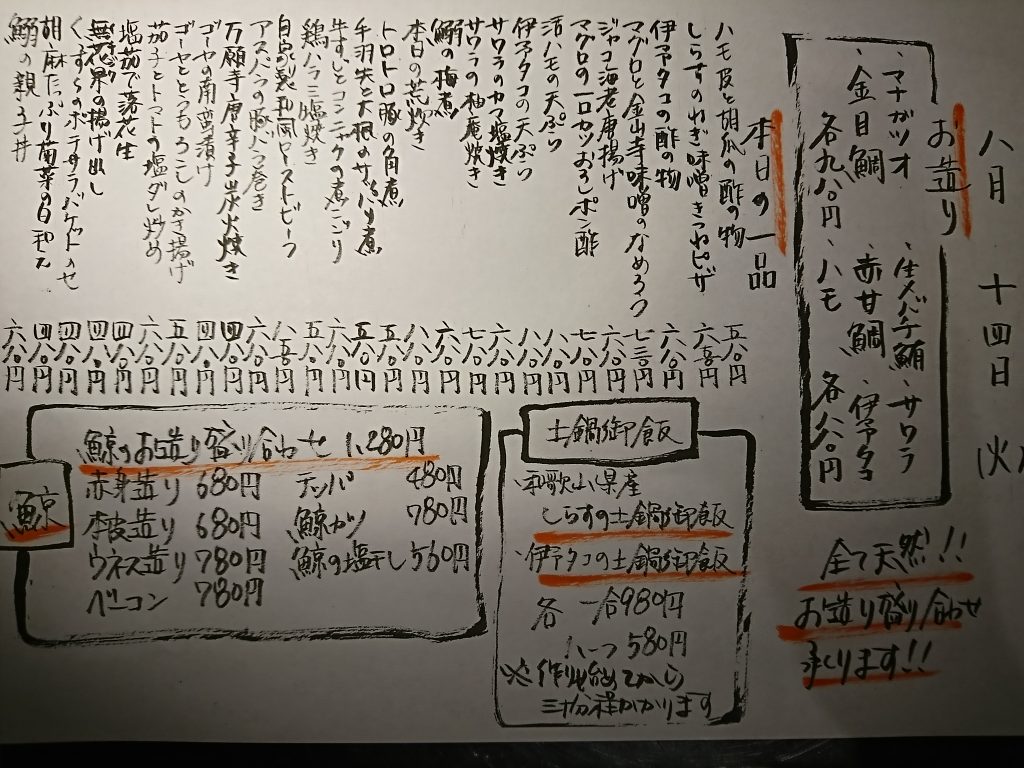 八月 十四日 (火)
お造り
・マナガツオ ・生バチ鮪 ・サワラ
・金目鯛 ・赤甘鯛 ・伊予タコ
各九八〇円 ・ハモ 各八八〇円
全て天然!!
お造り盛り合わせ
承ります!!
本日の一品
ハモ皮と胡瓜の酢の物 五八〇円
しらすのねぎ味噌きつねピザ 六五〇円
伊予タコの酢の物 六八〇円
マグロと金山寺味噌のなめろう 七三〇円
ジャコ海老唐揚げ 五八〇円
マグロの一口カツおろしポン酢 七八〇円
活ハモの天ぷら 八八〇円
伊予タコの天ぷら 八八〇円
サワラのカマ塩焼き 六八〇円
サワラの柚庵焼き 七八〇円
鰯の梅煮 六八〇円
本日の荒炊き 八八〇円
トロトロ豚の角煮 五八〇円
手羽先と大根のサッパリ煮 五八〇円
牛すじとコンニャクの煮こごり 六八〇円
鶏ハラミ塩焼き 五八〇円
自家製和風ローストビーフ 八五〇円
アスパラの豚バラ巻き 六八〇円
万願寺唐辛子炭火焼き 四八〇円
ゴーヤの南蛮漬け 四八〇円
ゴーヤととうもろこしのかき揚げ 五八〇円
茄子とトマトの塩ダレ炒め 六八〇円
塩茹で落花生 四八〇円
無花果の揚げ出し 四八〇円
くじらのポテサラ バケットのせ 四八〇円
胡麻たっぷり菊菜の白和え 四八〇円
鰯の親子丼 六八〇円
土鍋御飯
・和歌山県産
しらすの土鍋御飯
・伊予タコの土鍋御飯
各 一合980円
ハーフ 580円
※作り始めてから
三十分程かかります
鯨
鯨のお造り盛り合わせ 1,280円
赤身造り 680円 テッパ 480円
本皮造り 680円 鯨カツ 780円
ウネス造り 780円 鯨の塩干し 560円
ベーコン 780円